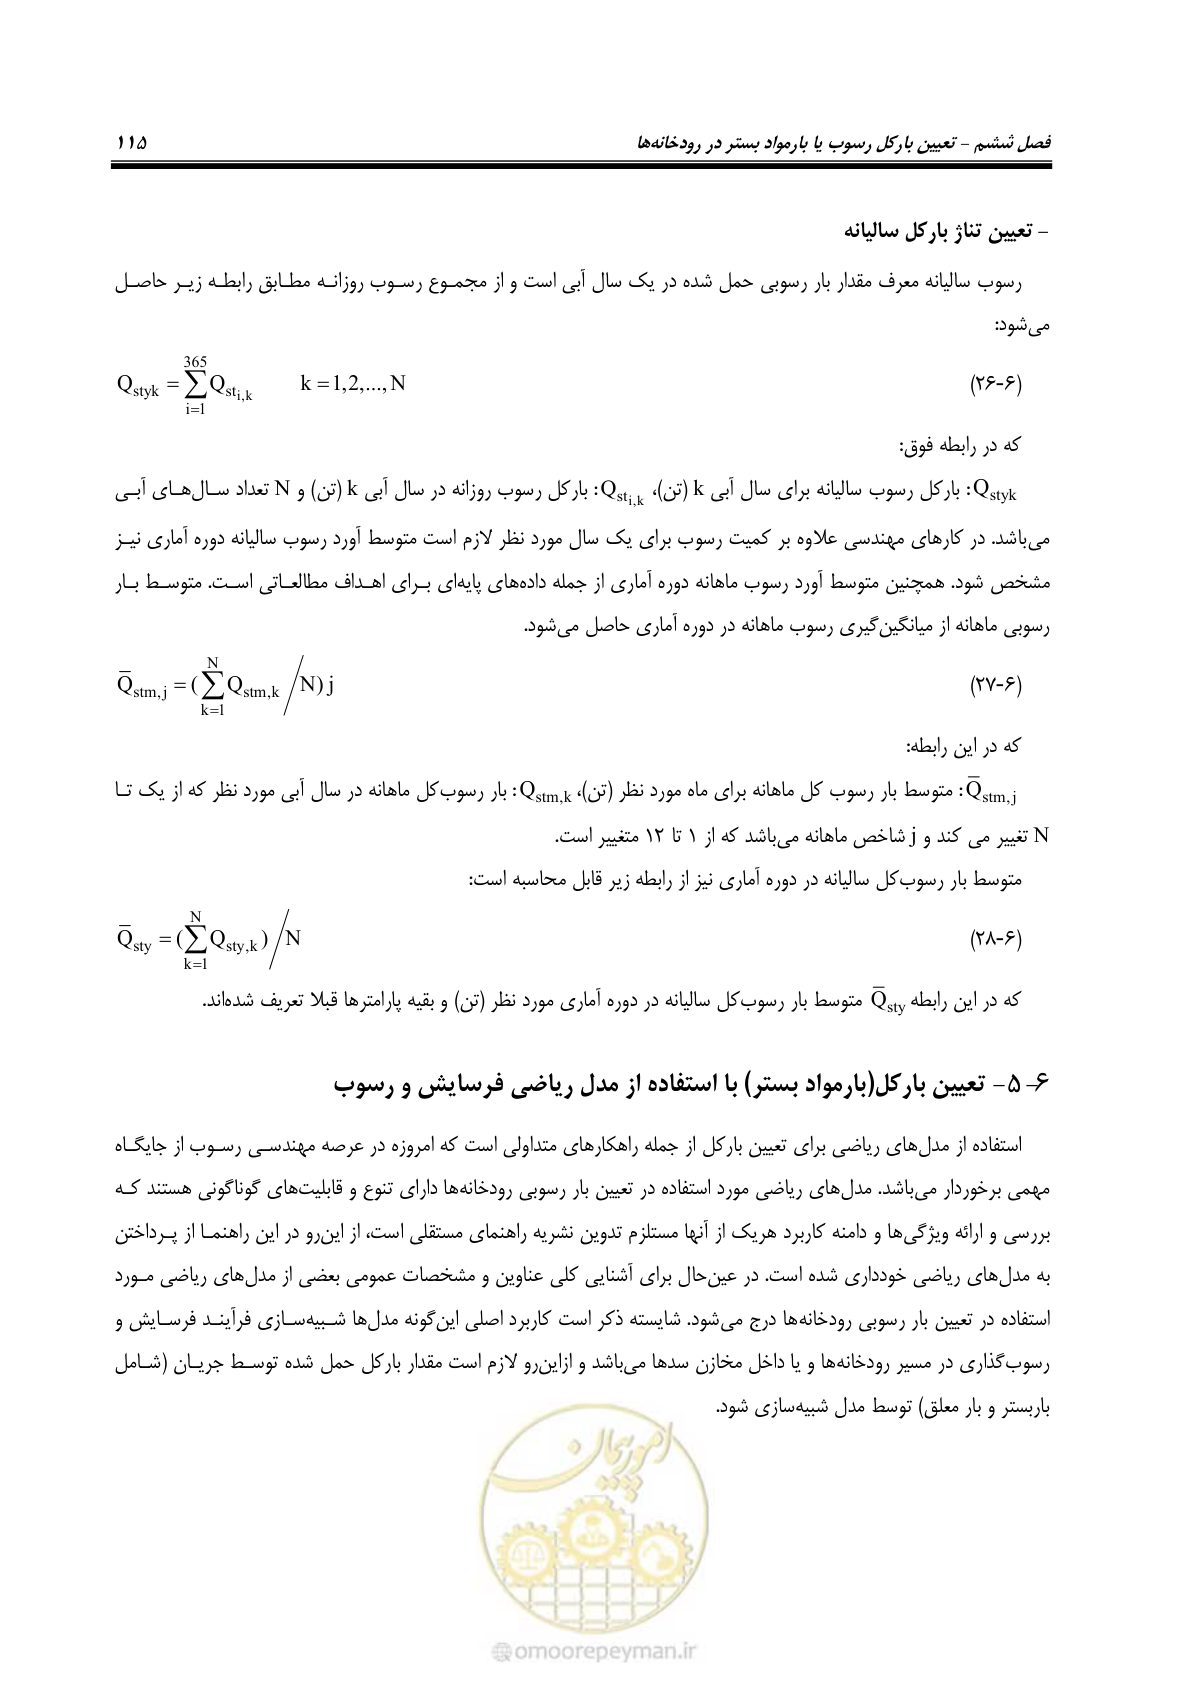 فصل ششم – تعیین بارکل رسوب یا بارمواد بستر در رودخانه‌ها ۱۱۵
– تعیین تناژ بارکل سالیانه
رسوب سالیانه معرف مقدار بار رسوبی حمل شده در یک سال آبی است و از مجموع رسوب روزانه مطابق رابطه زیر حاصل
می‌شود:
Q_styk = ∑_{i=1}^{365} Q_{st_{i,k}} k = 1,2,..., N (۲۶-۶)
که در رابطه فوق:
Q_styk: بارکل رسوب سالیانه برای سال آبی k (تن)، Q_{st_{i,k}}: بارکل رسوب روزانه در سال آبی k (تن) و N تعداد سال‌های آبی
می‌باشد. در کارهای مهندسی علاوه بر کمیت رسوب برای یک سال مورد نظر لازم است متوسط آورد رسوب سالیانه دوره آماری نیز
مشخص شود. همچنین متوسط آورد رسوب ماهانه دوره آماری از جمله داده‌های پایه‌ای برای اهداف مطالعاتی است. متوسط بار
رسوبی ماهانه از میانگین‌گیری رسوب ماهانه در دوره آماری حاصل می‌شود.
Q̅_{stm,j} = (∑_{k=1}^{N} Q_{stm,k} / N) j (۲۷-۶)
که در این رابطه:
Q̅_{stm,j}: متوسط بار رسوب کل ماهانه برای ماه مورد نظر (تن)، Q_{stm,k}: بار رسوب‌کل ماهانه در سال آبی مورد نظر که از یک تا
N تغییر می کند و j شاخص ماهانه می‌باشد که از ۱ تا ۱۲ متغییر است.
متوسط بار رسوب‌کل سالیانه در دوره آماری نیز از رابطه زیر قابل محاسبه است:
Q̅_sty = (∑_{k=1}^{N} Q_{sty,k}) / N (۲۸-۶)
که در این رابطه Q̅_sty متوسط بار رسوب‌کل سالیانه در دوره آماری مورد نظر (تن) و بقیه پارامترها قبلا تعریف شده‌اند.
۶-۵- تعیین بارکل(بارمواد بستر) با استفاده از مدل ریاضی فرسایش و رسوب
استفاده از مدل‌های ریاضی برای تعیین بارکل از جمله راهکارهای متداولی است که امروزه در عرصه مهندسی رسوب از جایگاه
مهمی برخوردار می‌باشد. مدل‌های ریاضی مورد استفاده در تعیین بار رسوبی رودخانه‌ها دارای تنوع و قابلیت‌های گوناگونی هستند که
بررسی و ارائه ویژگی‌ها و دامنه کاربرد هریک از آنها مستلزم تدوین نشریه راهنمای مستقلی است، از این‌رو در این راهنما از پرداختن
به مدل‌های ریاضی خودداری شده است. در عین‌حال برای آشنایی کلی عناوین و مشخصات عمومی بعضی از مدل‌های ریاضی مورد
استفاده در تعیین بار رسوبی رودخانه‌ها درج می‌شود. شایسته ذکر است کاربرد اصلی این‌گونه مدل‌ها شبیه‌سازی فرآیند فرسایش و
رسوب‌گذاری در مسیر رودخانه‌ها و یا داخل مخازن سدها می‌باشد و ازاین‌رو لازم است مقدار بارکل حمل شده توسط جریان (شامل
باربستر و بار معلق) توسط مدل شبیه‌سازی شود.
امور پیمان
@omoorepeyman.ir